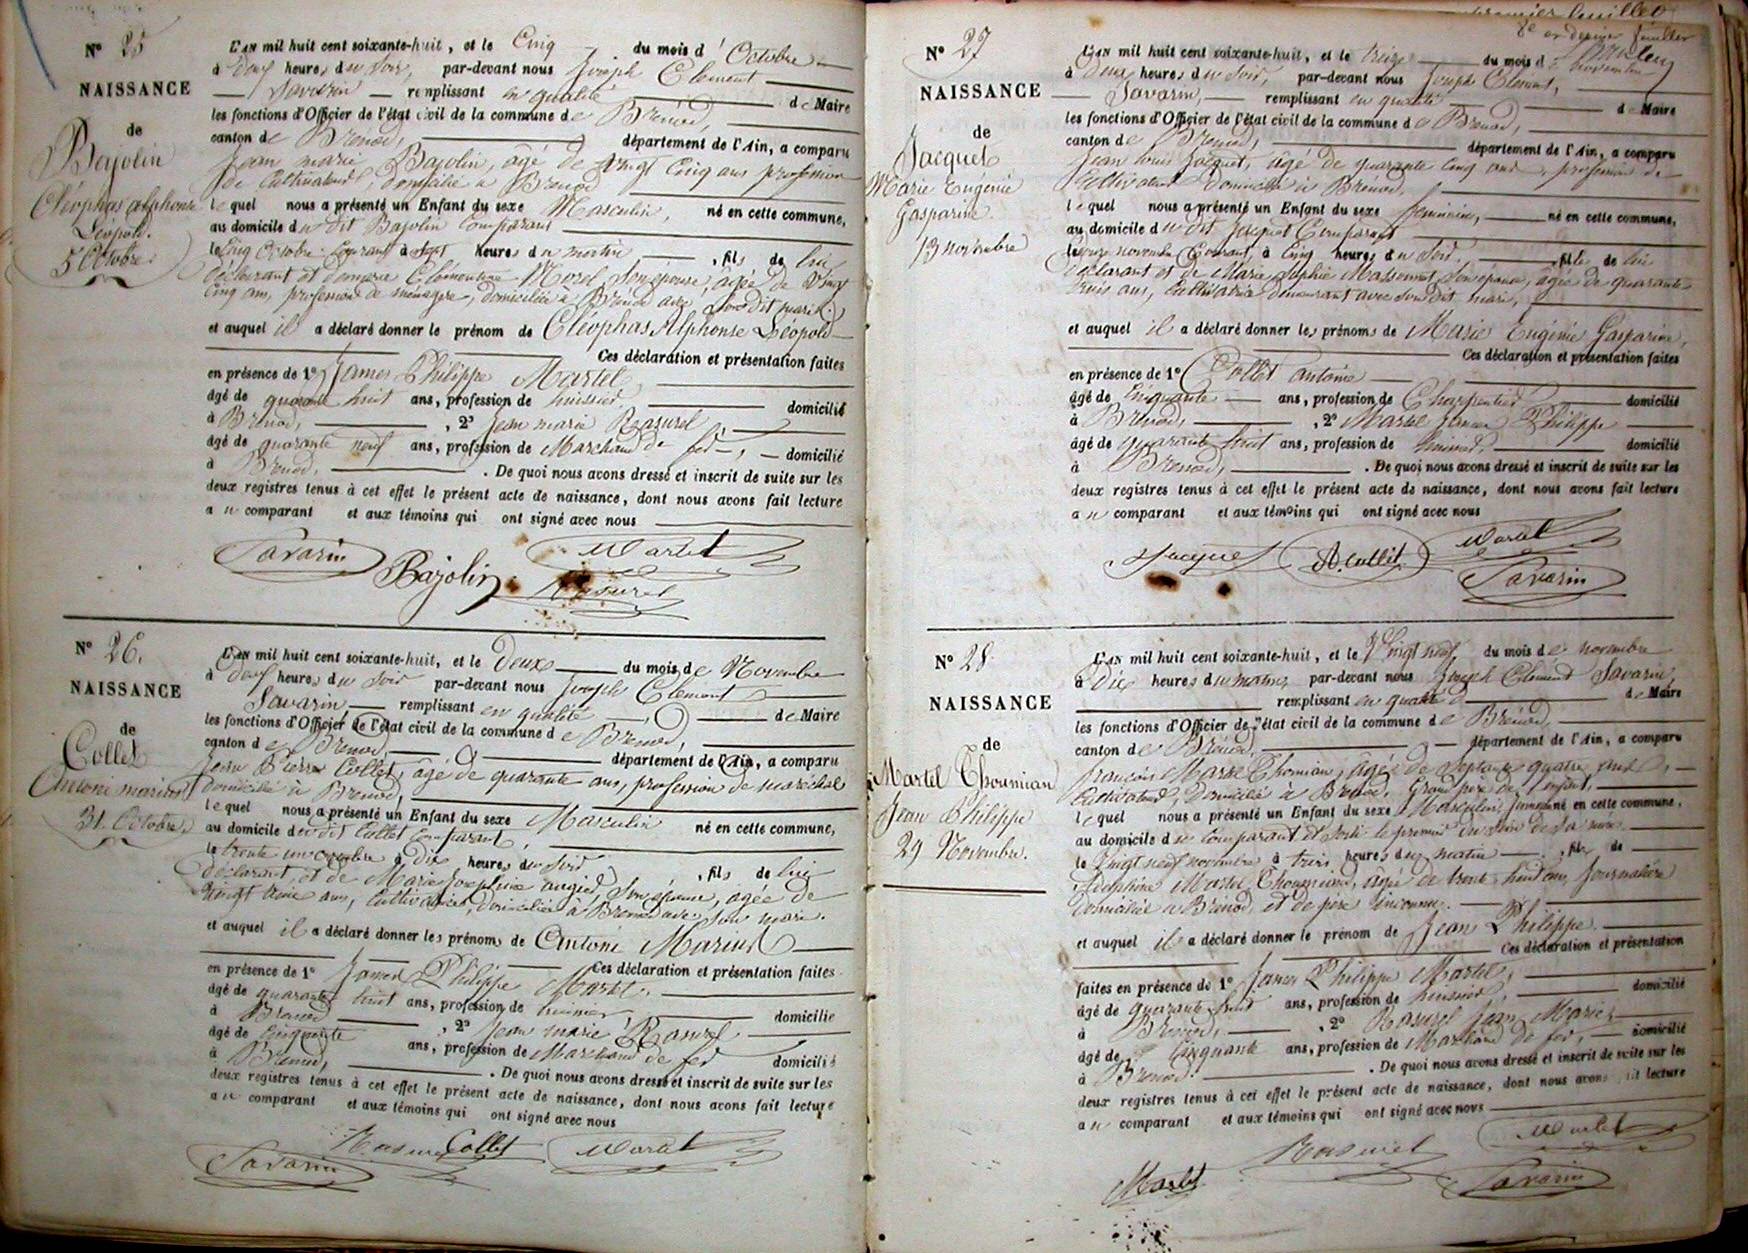 N° 25
NAISSANCE
de
Bajolin
Cléophas alphonse
Léopold.
5 Octobre
L'AN mil huit cent soixante-huit, et le Cinq du mois d' Octobre
à deux heures du Soir, par-devant nous Joseph Clement
Savarin remplissant en qualité de Maire
les fonctions d'Officier de l'état civil de la commune de Brénod,
canton de Brénod, département de l'Ain, a comparu
Jean marie Bajolin, âgé de vingt Cinq ans profession
de Cultivateur, domicilié à Brenod
lequel nous a présenté un Enfant du sexe Masculin, né en cette commune,
au domicile du dit Bajolin Comparant
le Cinq Octobre Courant à sept heures du matin, fils de lui
déclarant et de marie Clémentine Morel Son épouse, âgée de Vingt
Cinq ans, profession de ménagère, domiciliée à Brénod avec Son dit mari.
et auquel il a déclaré donner le prénom de Cléophas Alphonse Léopold
Ces déclaration et présentation faites
en présence de 1° James Philippe Martel
âgé de quarante huit ans, profession de huissier domicilié
à Brénod, , 2° Jean marie Rasurel,
âgé de quarante neuf ans, profession de Marchand de fer, domicilié
à Brénod, . De quoi nous avons dressé et inscrit de suite sur les
deux registres tenus à cet effet le présent acte de naissance, dont nous avons fait lecture
au comparant et aux témoins qui ont signé avec nous
Savarin Bajolin Martel
Rasurel
N° 26.
NAISSANCE
de
Collet
Antoine marius
31. Octobre
L'AN mil huit cent soixante-huit, et le Deux du mois de Novembre
à deux heures du Soir par-devant nous Joseph Clement
Savarin remplissant en qualité de Maire
les fonctions d'Officier de l'état civil de la commune de Brenod,
canton de Brenod département de l'Ain, a comparu
Jean Pierre Collet, âgé de quarante ans, profession de maréchal
domicilié à Brenod,
lequel nous a présenté un Enfant du sexe Masculin né en cette commune,
au domicile du dit Collet Comparant,
le trente un octobre à Dix heures du Soir, fils de lui
déclarant et de Marie Josephine Son épouse, agée de
ans, Cultivatrice, domiciliée à Brenod avec Son mari.
et auquel il a déclaré donner les prénoms de Antoine Marius
Ces déclaration et présentation faites
en présence de 1° James Philippe Martel,
âgé de quarante huit ans, profession de huissier, domicilié
à Brenod , 2° Jean marie Rasurel
âgé de Cinquante ans, profession de Marchand de fer domicilié
à Brenod, . De quoi nous avons dressé et inscrit de suite sur les
deux registres tenus à cet effet le présent acte de naissance, dont nous avons fait lecture
au comparant et aux témoins qui ont signé avec nous
Rasurel Collet Martel
Savarin
premier feuillet
8e et dernier feuillet
N° 27
NAISSANCE
de
Jacquet
Marie Eugénie
Gasparine.
13 novembre
L'AN mil huit cent soixante-huit, et le treize du mois de novembre
à Deux heures du Soir, par-devant nous Joseph Clément,
Savarin, remplissant en qualité de Maire
les fonctions d'Officier de l'état civil de la commune de Brenod,
canton de Brenod, département de l'Ain, a comparu
Jean louis Jacquet, âgé de quarante Cinq ans, profession de
Cultivateur domicilié à Brenod,
lequel nous a présenté un Enfant du sexe feminin, né en cette commune,
au domicile du dit Jacquet Comparant
le novembre Courant, à Cinq heures du Soir. fille de lui
déclarant et de Marie Sophie Massonnet Son épouse, âgée de quarante
trois ans, Cultivatrice demeurant avec Son dit mari,
et auquel il a déclaré donner les prénoms de Marie Eugénie Gasparine,
Ces déclaration et présentation faites
en présence de 1° Collet antoine
âgé de Cinquante ans, profession de Charpentier domicilié
à Brénod, , 2° Martel James Philippe
âgé de quarante huit ans, profession de huissier, domicilié
à Brenod, . De quoi nous avons dressé et inscrit de suite sur les
deux registres tenus à cet effet le présent acte de naissance, dont nous avons fait lecture
au comparant et aux témoins qui ont signé avec nous
Jacquet A. Collet Martel
Savarin
N° 28
NAISSANCE
de
Martel Thoumian
Jean Philippe
29 Novembre.
L'AN mil huit cent soixante-huit, et le Vingt neuf du mois de novembre
à Dix heures du matin, par-devant nous Joseph Clement Savarin,
remplissant en qualité de Maire
les fonctions d'Officier de l'état civil de la commune de Brénod,
canton de Brénod, département de l'Ain, a comparu
françois Martel Thoumian, âgé de Septante quatre ans,
Cultivateur, domicilié à Brénod, Grand père de l'enfant,
lequel nous a présenté un Enfant du sexe Masculin né en cette commune,
au domicile du comparant et Sorti le premier du Sein de Sa mère
le Vingt neuf novembre à trois heures du matin, fils de
Martel Thoumian, âgée de trente huit ans, Journalière
domiciliée à Brénod, et de père inconnu.
et auquel il a déclaré donner le prénom de Jean Philippe.
Ces déclaration et présentation
faites en présence de 1° James Philippe Martel,
âgé de quarante huit ans, profession de huissier, domicilié
à Brénod, , 2° Rasurel Jean Marie,
âgé de Cinquante ans, profession de Marchand de fer, domicilié
à Brénod. . De quoi nous avons dressé et inscrit de suite sur les
deux registres tenus à cet effet le présent acte de naissance, dont nous avons fait lecture
au comparant et aux témoins qui ont signé avec nous
Martel Rasurel Martel
Savarin